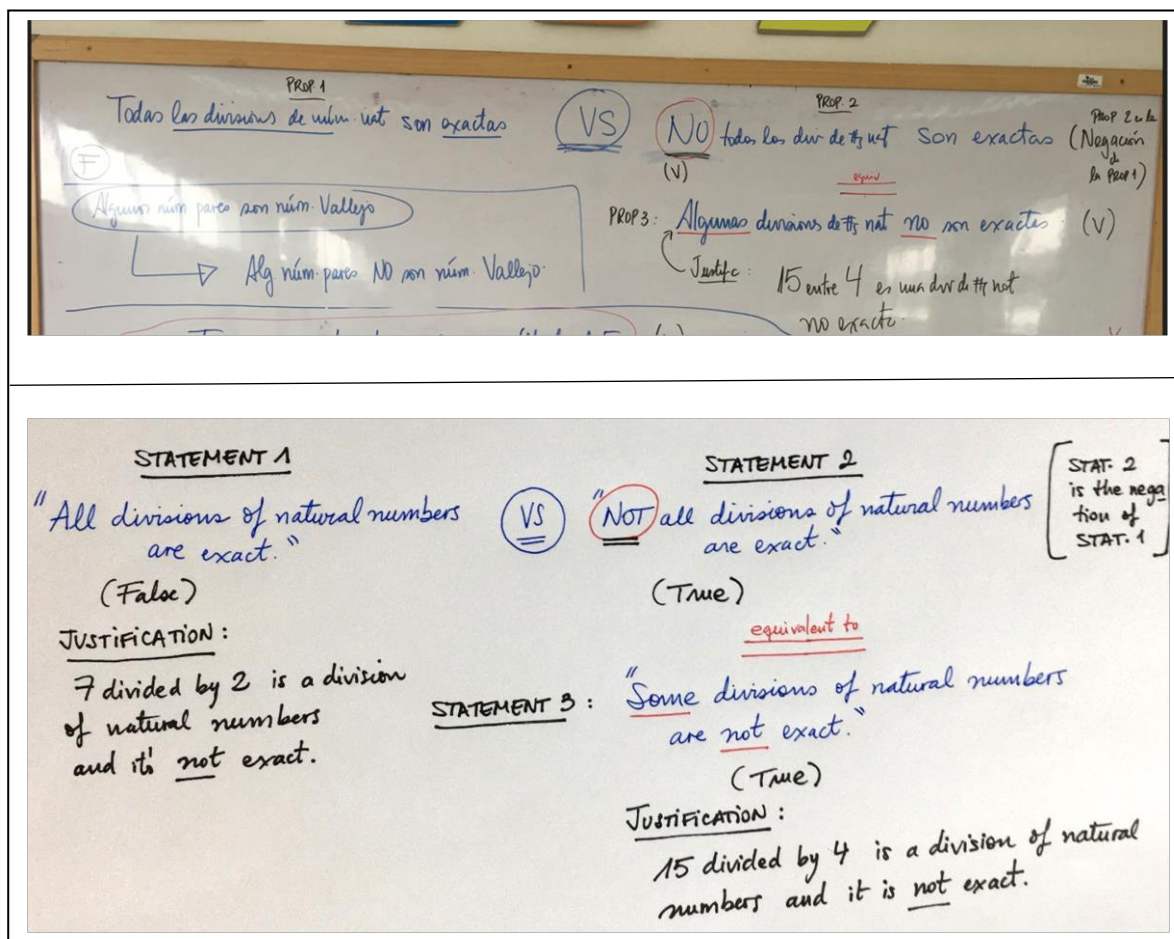 PROP 1
Todas las divisions de núm. nat son exactas
VS
PROP. 2
NO todas las div de #s nat son exactas
(V)
PROP 2 es la
(Negación
de
la PROP 1)
F
equiv.
Algunos núm pares son núm. Vallejo
Alg núm. pares NO son núm. Vallejo.
PROP 3: Algunas divisions de #s nat no son exactas (V)
Justific:
15 entre 4 es una div de #s nat
no exacta.
STATEMENT 1
"All divisions of natural numbers
are exact."
(False)
JUSTIFICATION:
7 divided by 2 is a division
of natural numbers
and it's not exact.
VS
STATEMENT 2
"NOT all divisions of natural numbers
are exact."
(True)
STAT. 2
is the nega
tion of
STAT. 1
equivalent to
STATEMENT 3: "Some divisions of natural numbers
are not exact."
(True)
JUSTIFICATION:
15 divided by 4 is a division of natural
numbers and it is not exact.